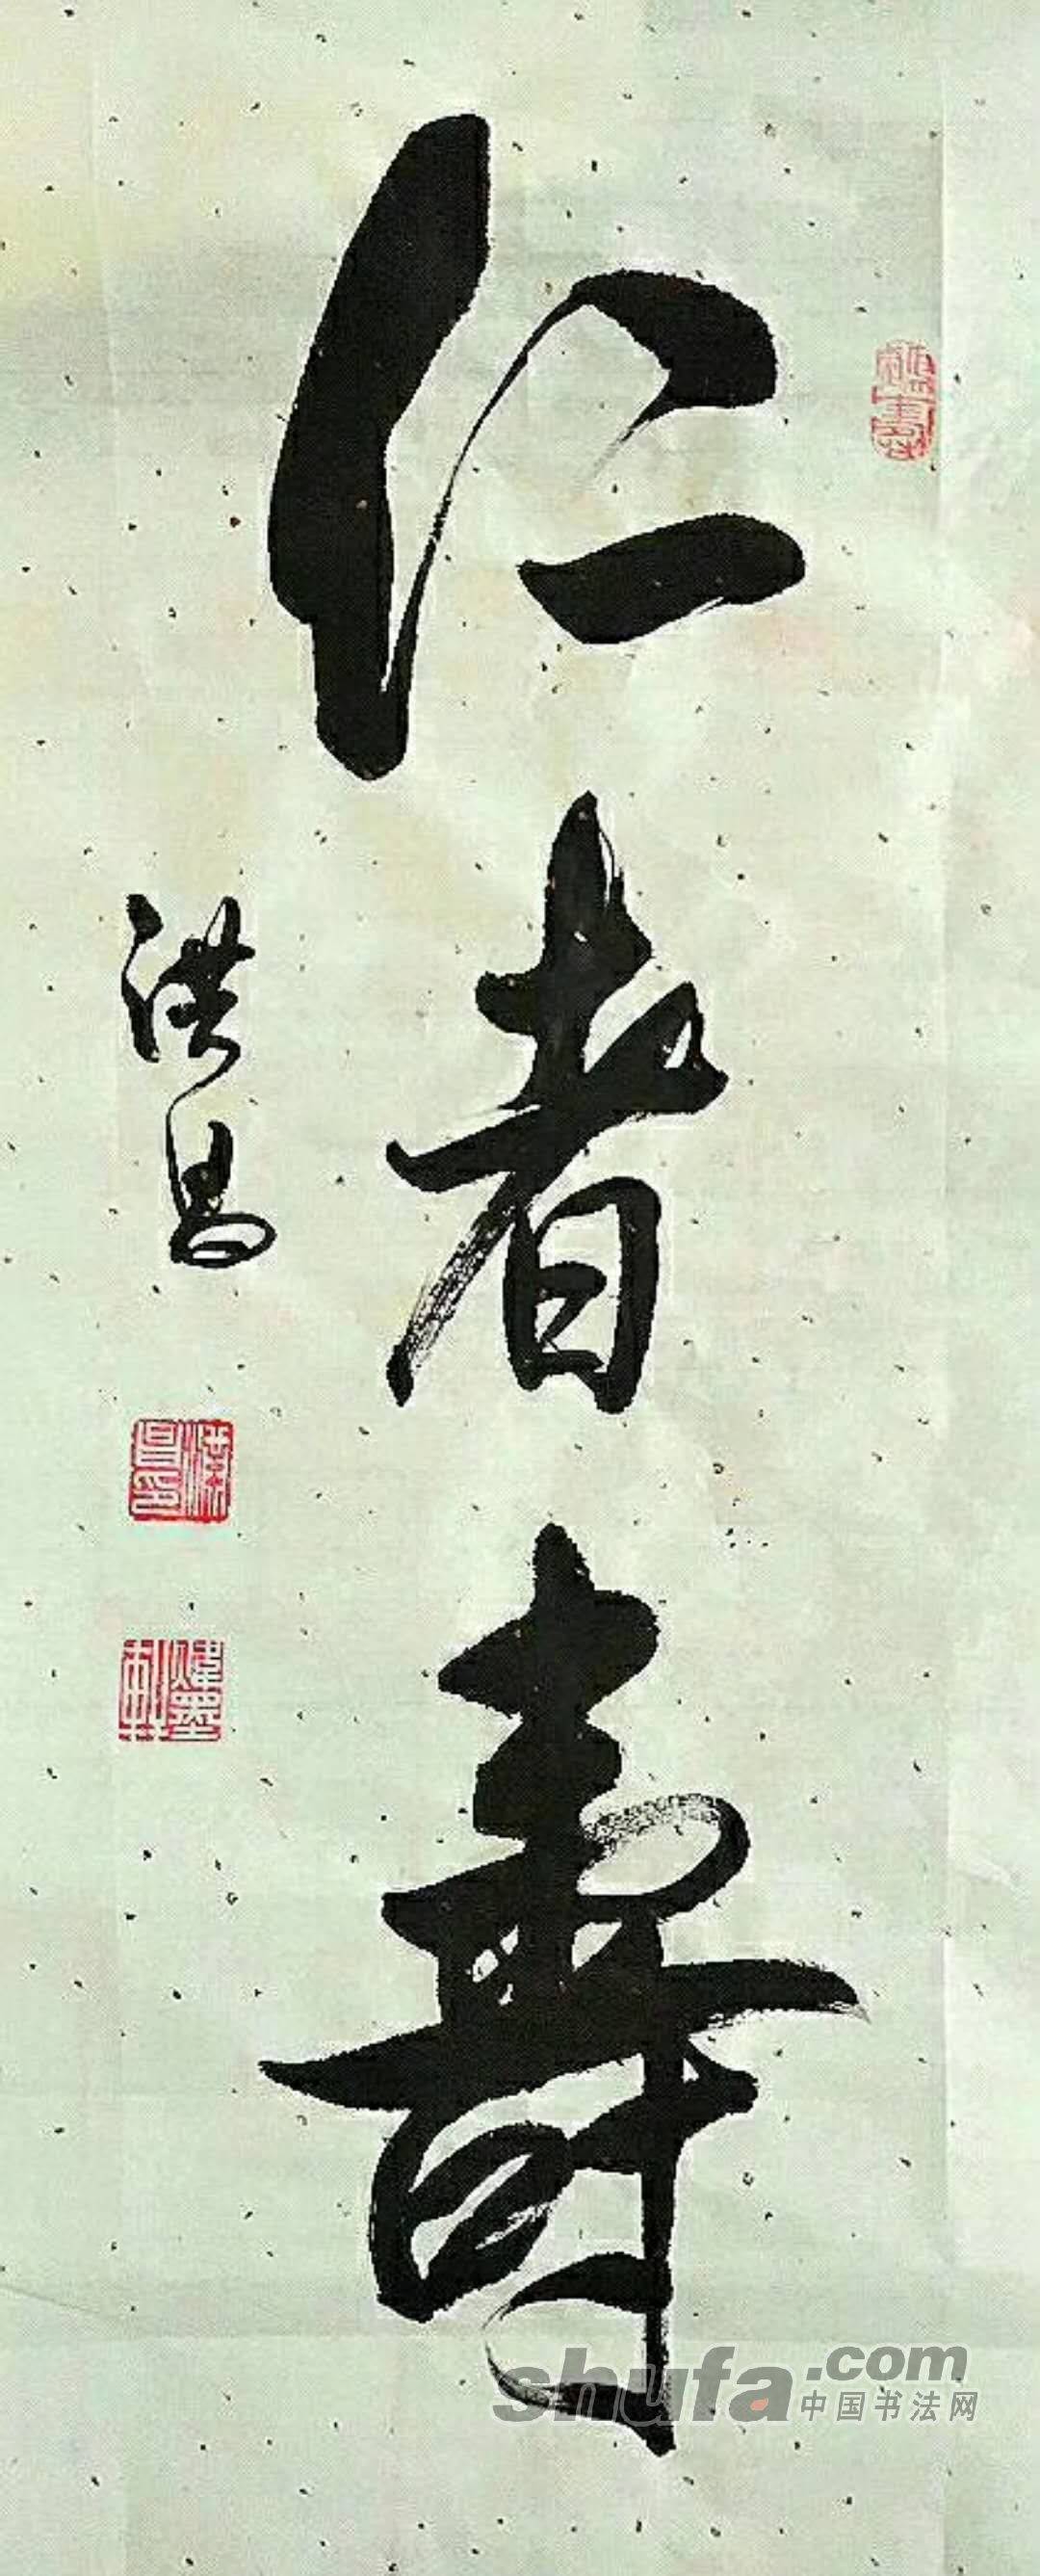 仁者寿
洪昌
shufa.com
中国书法网